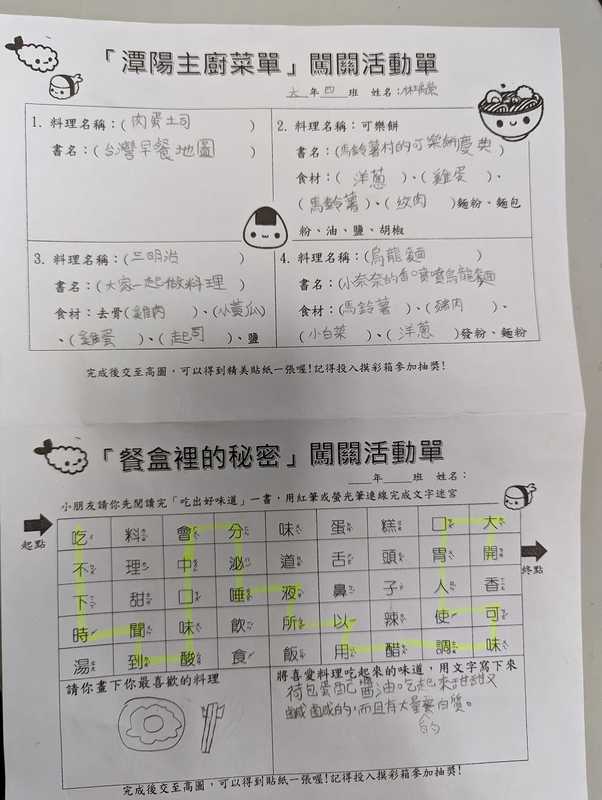 「潭陽主廚菜單」闖關活動單
六年四班 姓名:
1. 料理名稱:(肉蛋土司)
書名:(台灣早餐地圖)
2. 料理名稱:可樂餅
書名:(馬鈴薯村的可樂餅慶典)
食材:(洋蔥)、(雞蛋)、
(馬鈴薯)、(絞肉)麵粉、麵包
粉、油、鹽、胡椒
3. 料理名稱:(三明治)
書名:(大家一起做料理)
食材:去骨(雞肉)、(小黃瓜)
、(雞蛋)、(起司)、鹽
4. 料理名稱:(烏龍麵)
書名:(小奈奈的香噴噴烏龍麵
食材:(馬鈴薯)、(豬肉)、
(小白菜)、(洋蔥)發粉、麵粉
完成後交至高圖,可以得到精美貼紙一張喔!記得投入摸彩箱參加抽獎!
「餐盒裡的秘密」闖關活動單
年 班 姓名:
小朋友請你先閱讀完「吃出好味道」一書,用紅筆或螢光筆連線完成文字迷宮
起點
吃 料 會 分 味 蛋 糕 口 大
不 理 中 泌 道 舌 頭 胃 開
終點
下 甜 口 唾 液 鼻 子 人 香
時 聞 味 飲 所 以 辣 使 可
湯 到 酸 食 飯 用 醋 調 味
請你畫下你最喜歡的料理
將喜愛料理吃起來的味道,用文字寫下來
荷包蛋配醬油。吃起來甜甜又
鹹鹹的,而且有大量蛋白質。
的
完成後交至高圖,可以得到貼紙一張喔!記得投入摸彩箱參加抽獎!